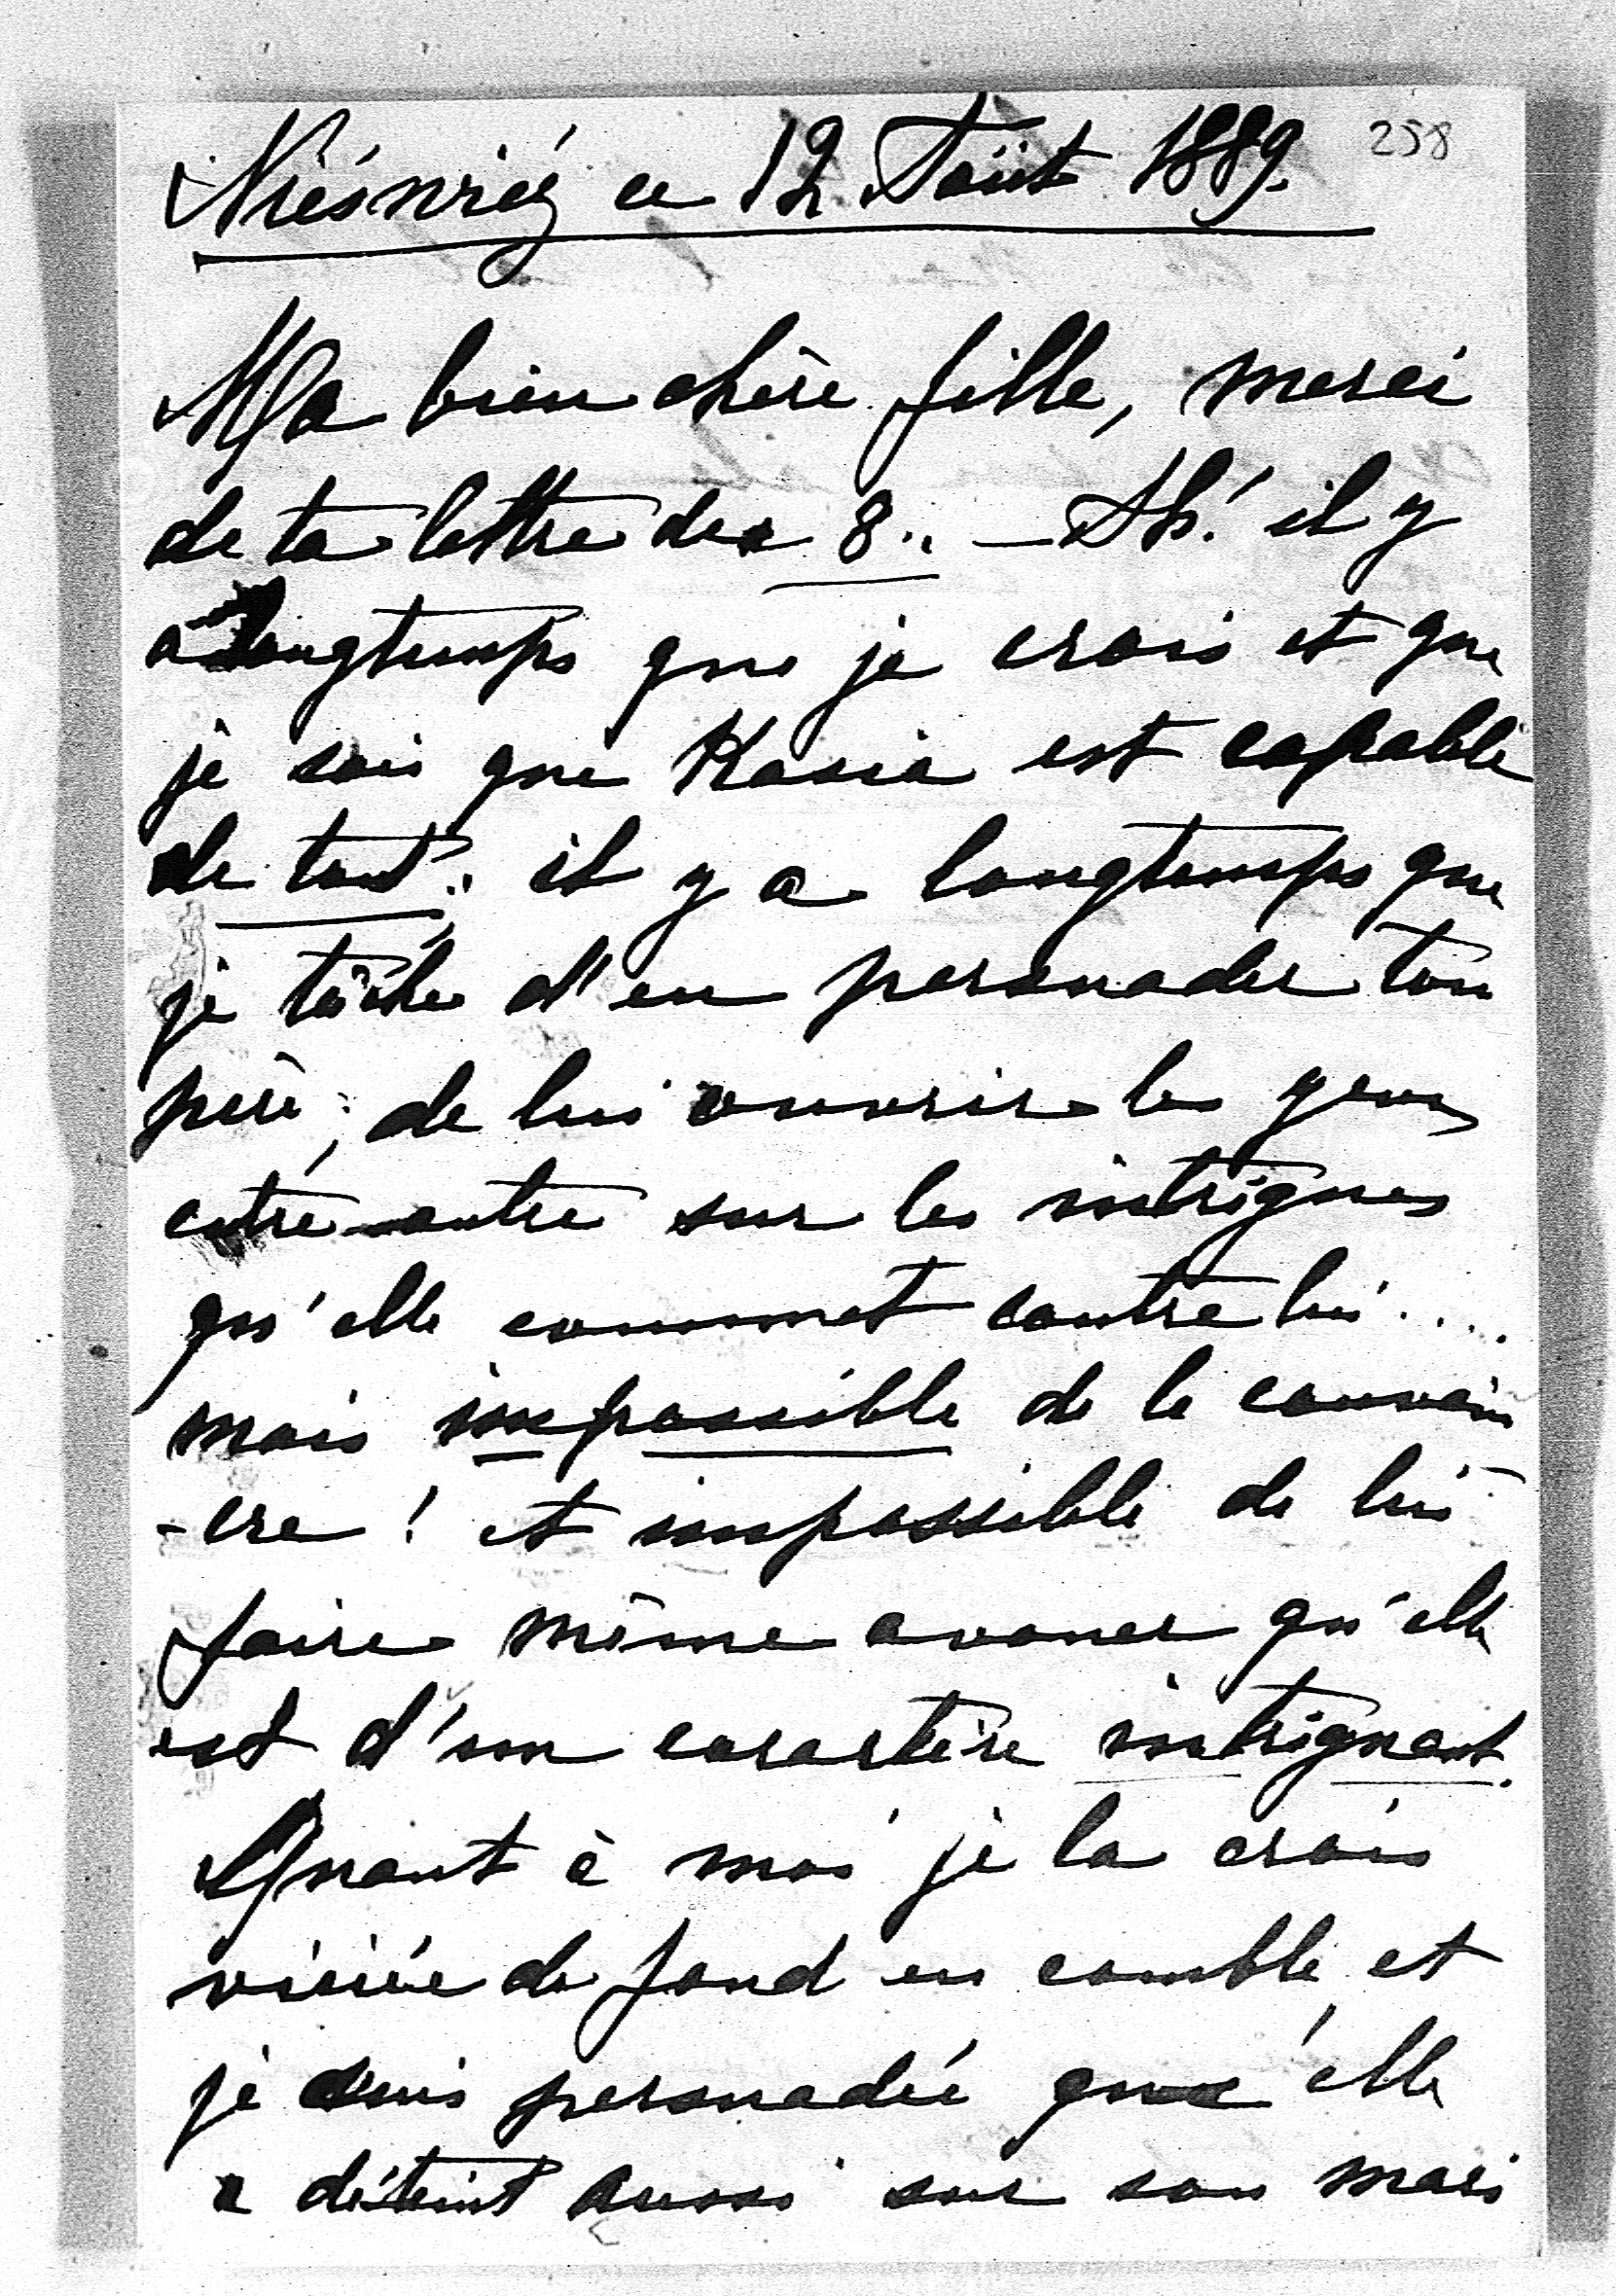 258
Niésniéz ce 12 Août 1889.
Ma bien chère fille, merci
de ta lettre de 8.. — Ah! il y
a longtemps que je crois et que
je sais que Kasia est capable
de tout.. il y a longtemps que
je tâche d'en persuader ton
père, de lui ouvrir les yeux
entre autre sur les intrigues
qu'elle commet contre lui....
mais impossible de le convain
-cre ! et impossible de lui
faire même avouer qu'elle
est d'un caractère intrignant.
Quant à moi je la crois
viciée de fond en comble et
je suis persuadée qu'elle
a déteint aussi sur son mari